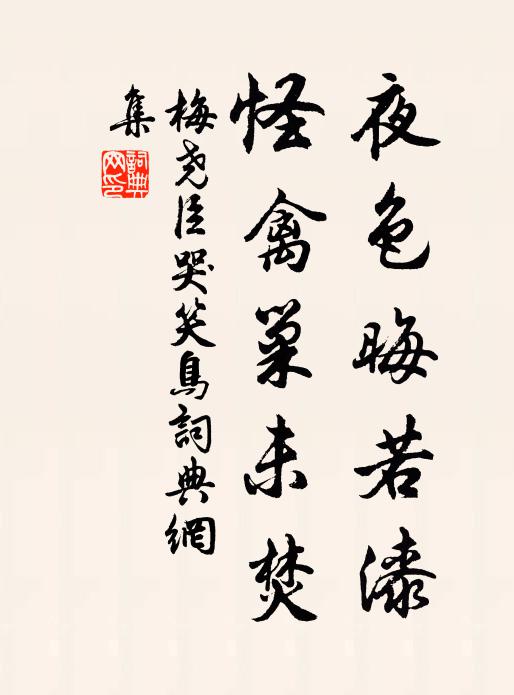 夜色晦若漆
怪禽巢未焚
梅尧臣哭笑鳥詞典網
集
詞典
网印